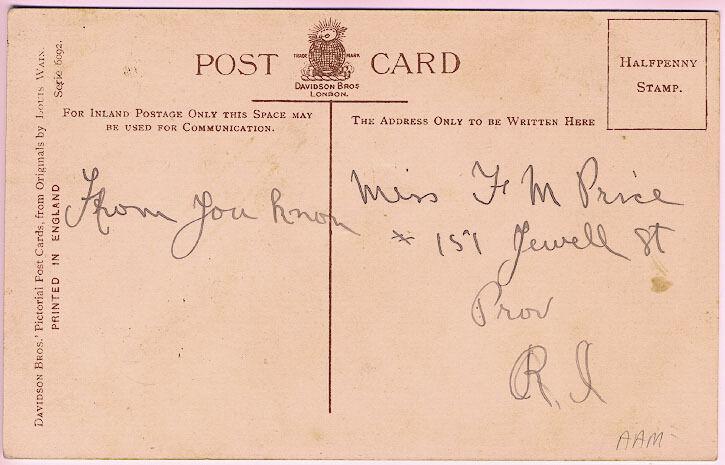 POST CARD
TRADE MARK
DAVIDSON BROS
LONDON.
HALFPENNY
STAMP.
FOR INLAND POSTAGE ONLY THIS SPACE MAY
BE USED FOR COMMUNICATION.
THE ADDRESS ONLY TO BE WRITTEN HERE
DAVIDSON BROS.' Pictorial Post Cards, from Originals by LOUIS WAIN.
Serie 6092.
PRINTED IN ENGLAND
From You know
Miss F M Price
151 Jewell St
Prov
R. I
AAM